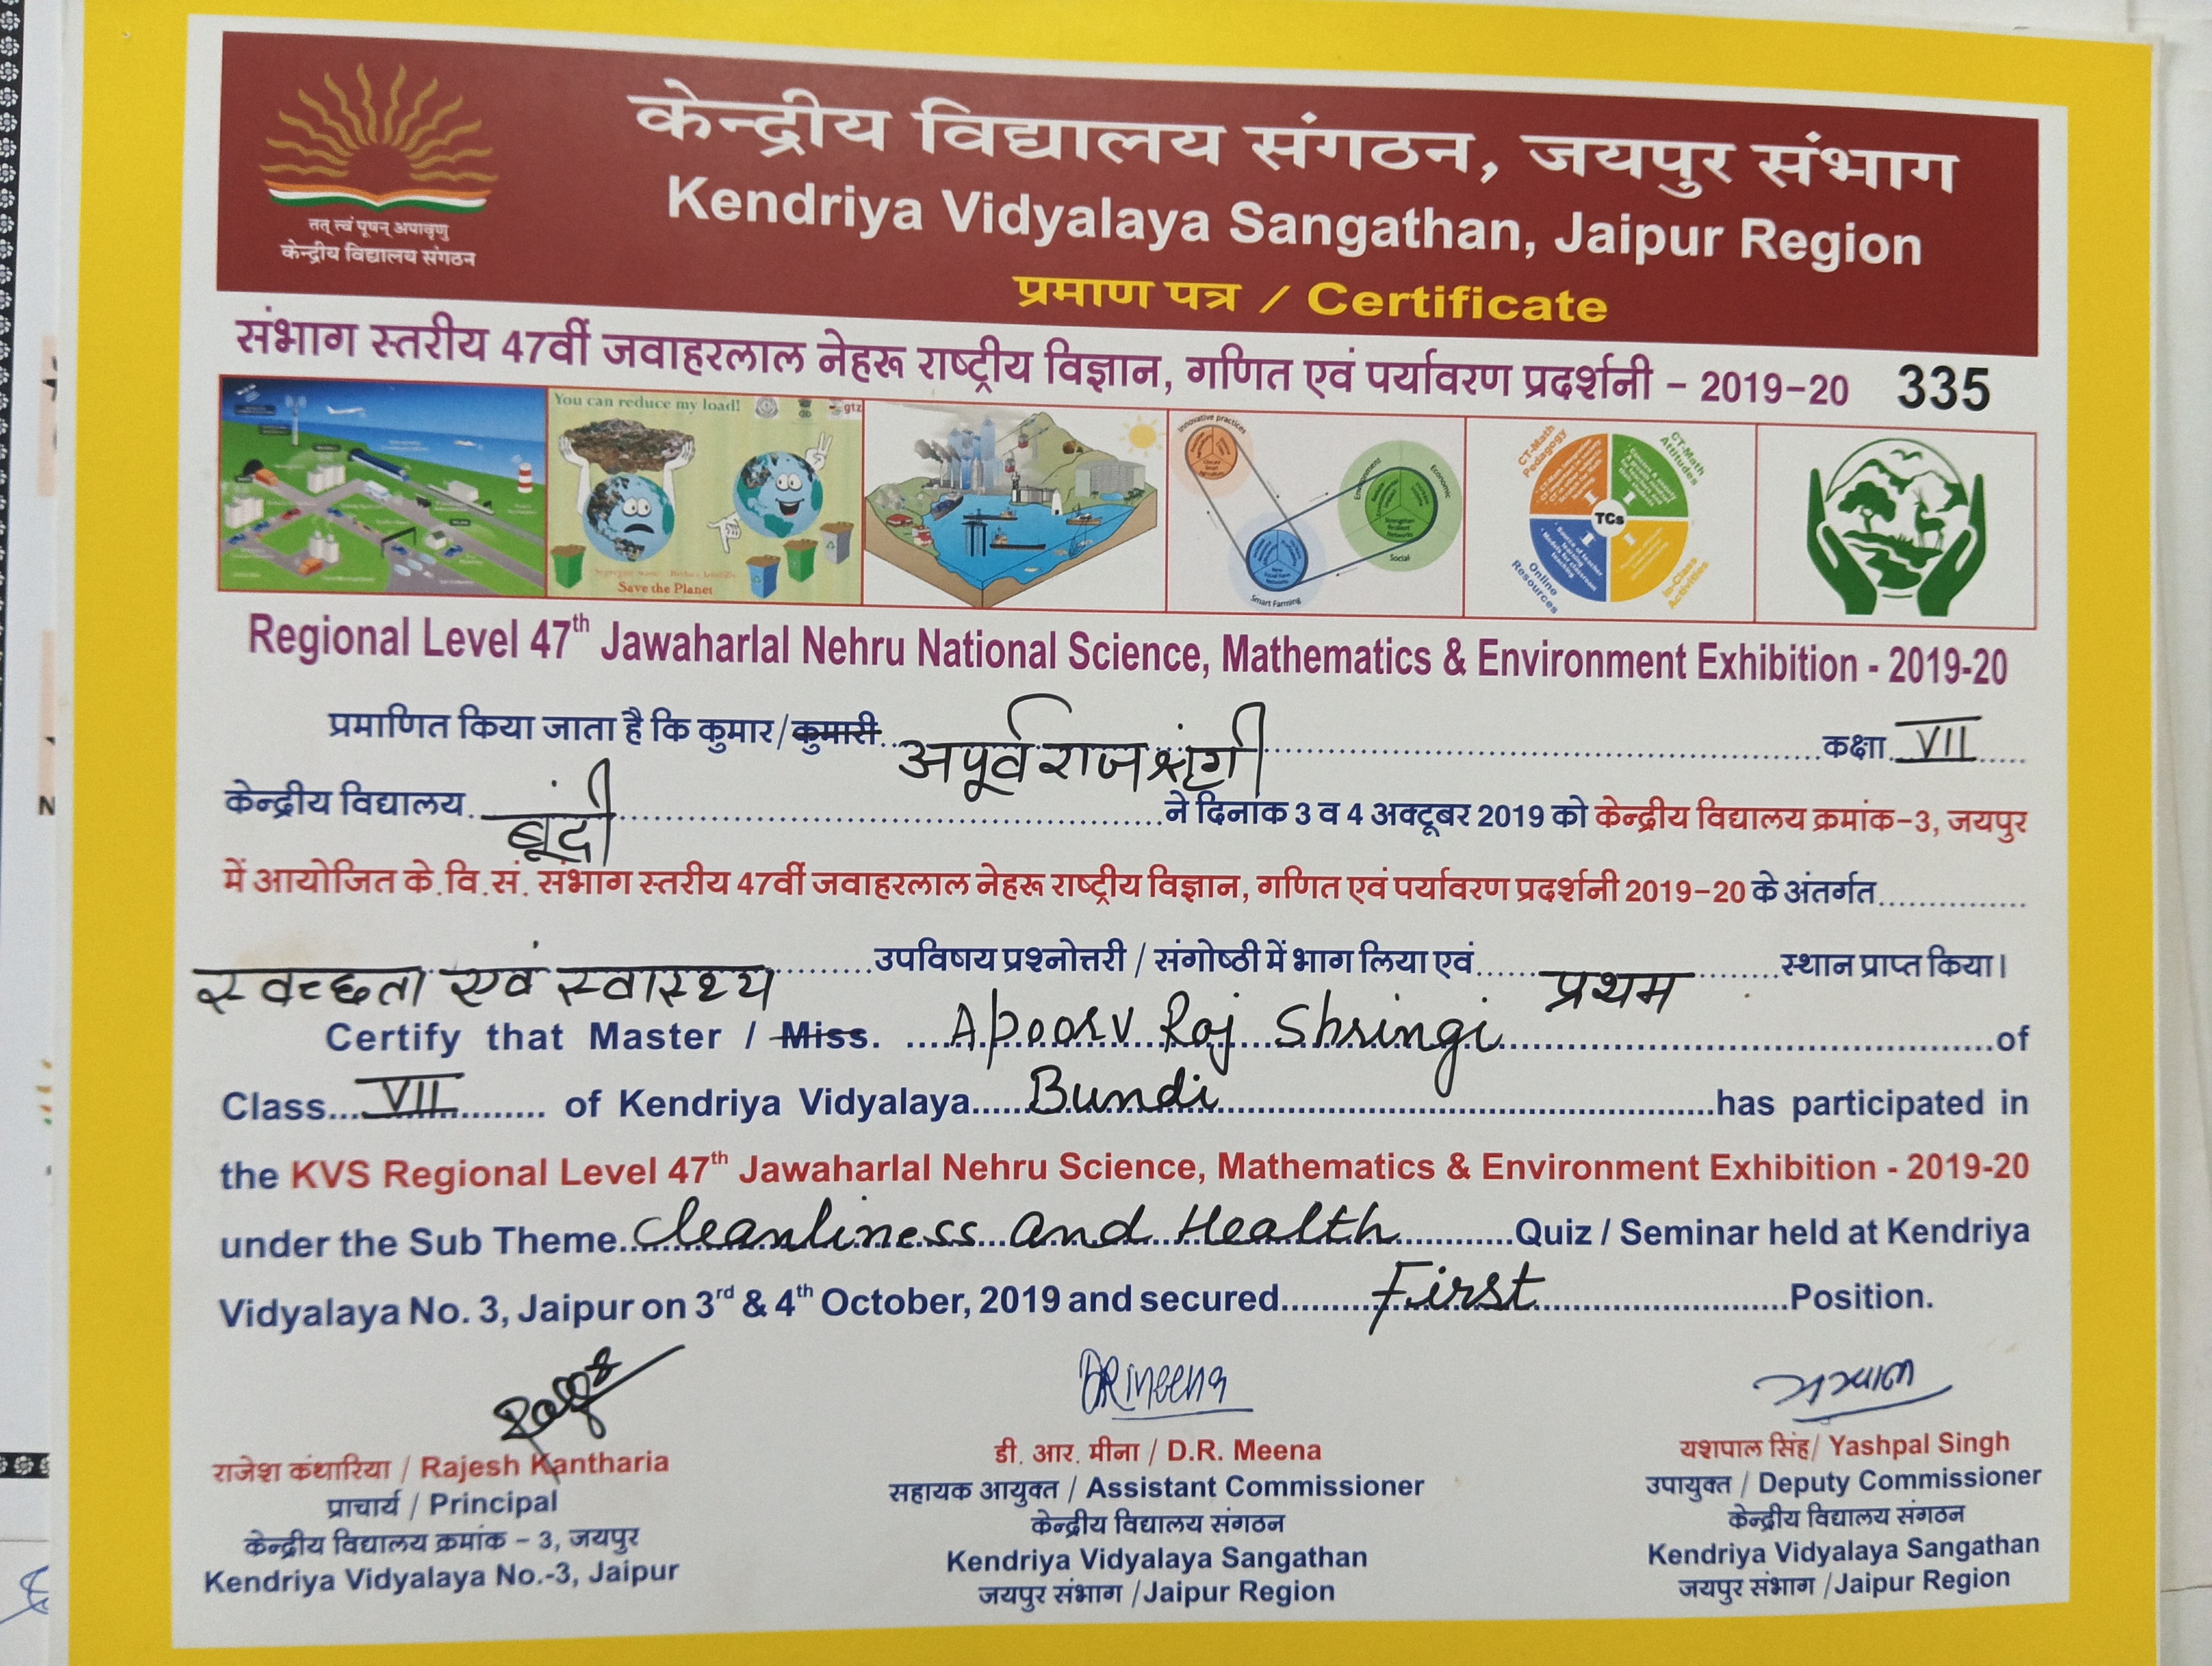 केन्द्रीय विद्यालय संगठन, जयपुर संभाग
Kendriya Vidyalaya Sangathan, Jaipur Region
तत् त्वं पूषन् अपावृणु
केन्द्रीय विद्यालय संगठन
प्रमाण पत्र / Certificate
संभाग स्तरीय 47वीं जवाहरलाल नेहरू राष्ट्रीय विज्ञान, गणित एवं पर्यावरण प्रदर्शनी – 2019-20 335
You can reduce my load!
gtz
Save the Planet
Innovative practices
Environment
Economic
Social
Smart Farming
CT-Math Pedagogy
CT-Math Attitudes
TCs
Online Resources
In-Class Activities
Regional Level 47th Jawaharlal Nehru National Science, Mathematics & Environment Exhibition - 2019-20
प्रमाणित किया जाता है कि कुमार/कुमारी अपूर्व राज श्रृंगी कक्षा VII
केन्द्रीय विद्यालय बूंदी ने दिनांक 3 व 4 अक्टूबर 2019 को केन्द्रीय विद्यालय क्रमांक-3, जयपुर
में आयोजित के.वि.सं. संभाग स्तरीय 47वीं जवाहरलाल नेहरू राष्ट्रीय विज्ञान, गणित एवं पर्यावरण प्रदर्शनी 2019-20 के अंतर्गत
स्वच्छता एवं स्वास्थ्य उपविषय प्रश्नोत्तरी / संगोष्ठी में भाग लिया एवं प्रथम स्थान प्राप्त किया।
Certify that Master / Miss. Apoorv Raj Shringi of
Class VII of Kendriya Vidyalaya Bundi has participated in
the KVS Regional Level 47th Jawaharlal Nehru Science, Mathematics & Environment Exhibition - 2019-20
under the Sub Theme Cleanliness and Health Quiz / Seminar held at Kendriya
Vidyalaya No. 3, Jaipur on 3rd & 4th October, 2019 and secured First Position.
DRMeena
राजेश कंथारिया / Rajesh Kantharia
प्राचार्य / Principal
केन्द्रीय विद्यालय क्रमांक – 3, जयपुर
Kendriya Vidyalaya No.-3, Jaipur
डी. आर. मीना / D.R. Meena
सहायक आयुक्त / Assistant Commissioner
केन्द्रीय विद्यालय संगठन
Kendriya Vidyalaya Sangathan
जयपुर संभाग /Jaipur Region
यशपाल सिंह/ Yashpal Singh
उपायुक्त / Deputy Commissioner
केन्द्रीय विद्यालय संगठन
Kendriya Vidyalaya Sangathan
जयपुर संभाग /Jaipur Region